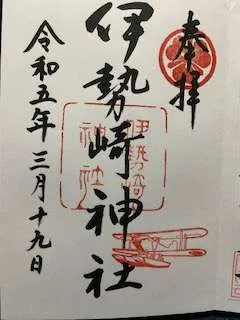 奉拝
伊勢崎神社
伊勢崎
神社
令和五年三月十九日